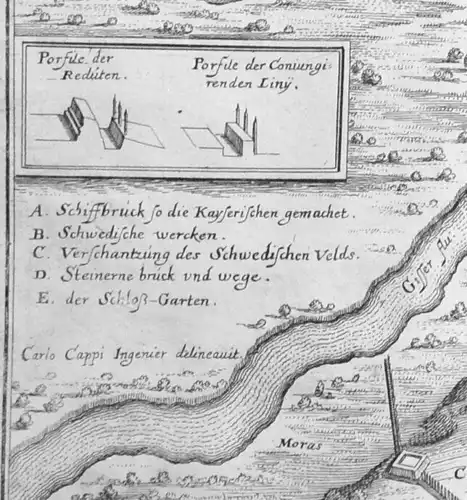 Porfile der
Redüten.
Porfile der Coniungi=
renden Linÿ.
A. Schiffbrück so die Kayserischen gemachet.
B. Schwedische wercken.
C. Verschantzung des Schwedischen Velds.
D. Steinerne brück vnd wege.
E. der Schloß-Garten.
Carlo Cappi Ingenier delineauit.
Giser flu:
Moras
C